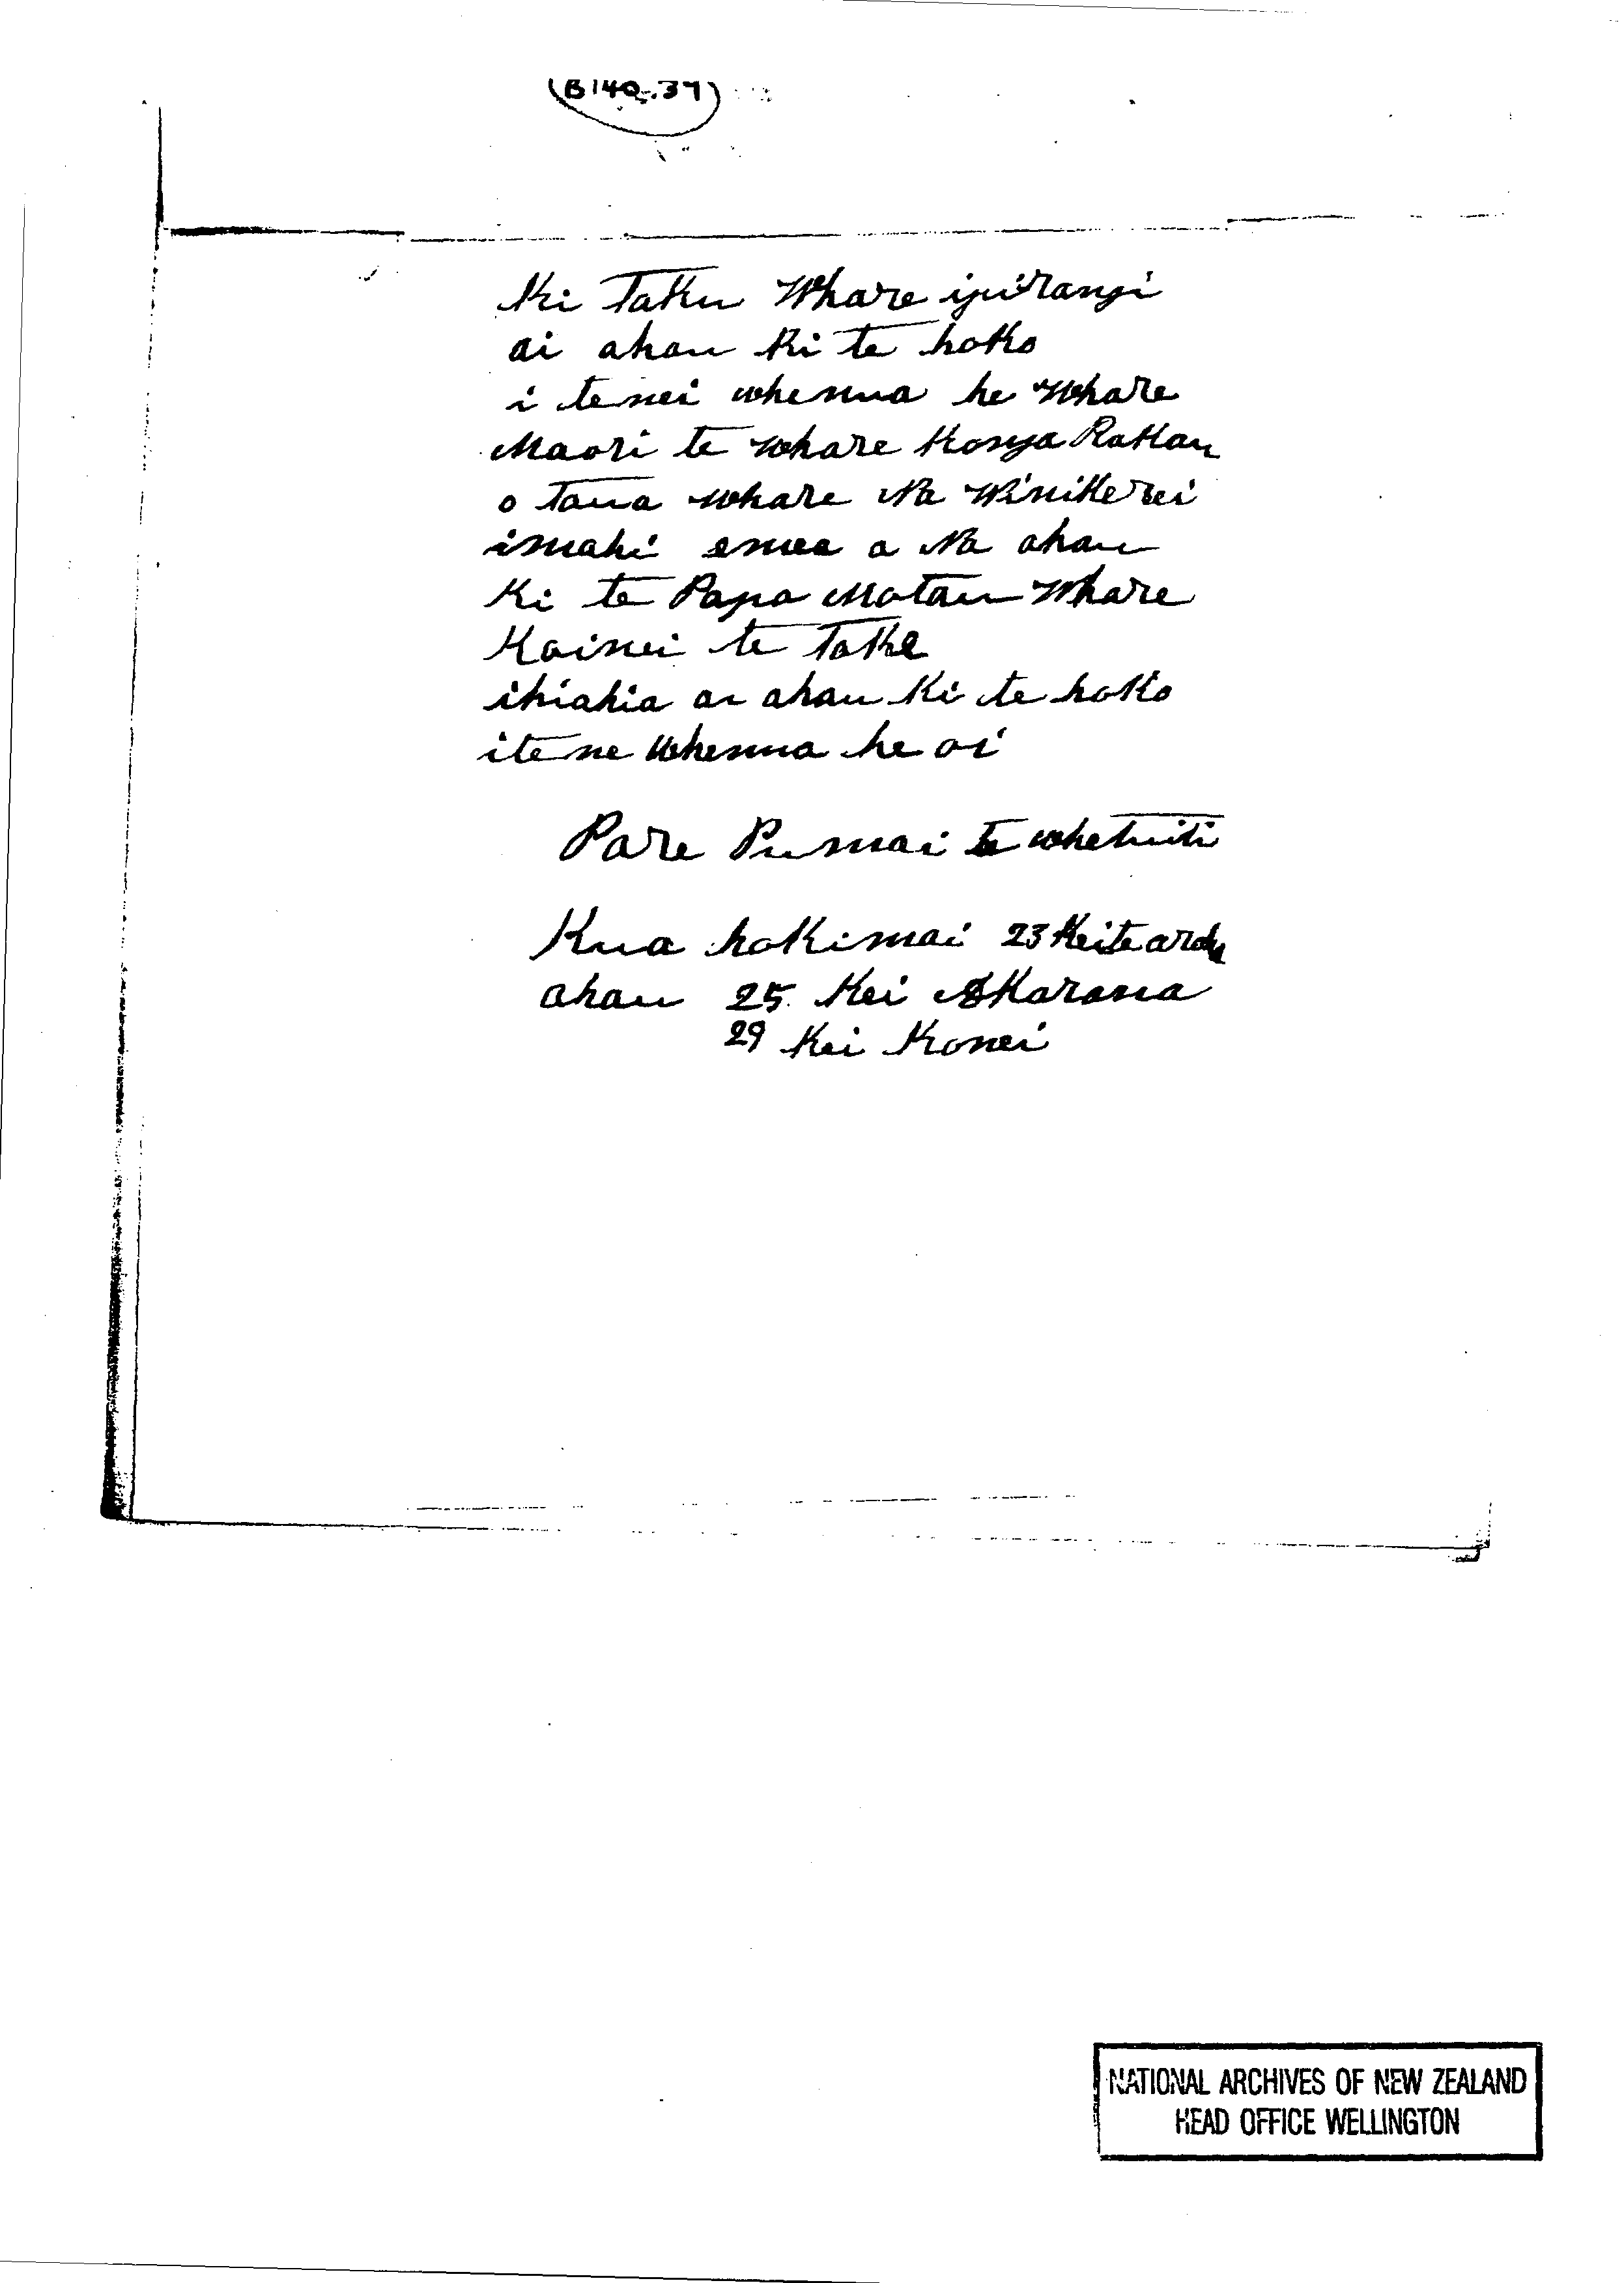 (B140-.37)
Ki Taku Whare ipirangi
ai ahau Ki te hoko
i tenei whenua he Whare
Maori te whare Konga Rakau
o Taua whare Na Winikerei
imahi emea a Na ahau
Ki te Papa Matau Whare
Koinei te Take
ihiahia ai ahau Ki te hoko
itene Whenua he oi
Pare Pumai te whetuiti
Kua hokimai 23 Keite
ahau 25. Kei Akarana
29 Kei Konei
NATIONAL ARCHIVES OF NEW ZEALAND
HEAD OFFICE WELLINGTON